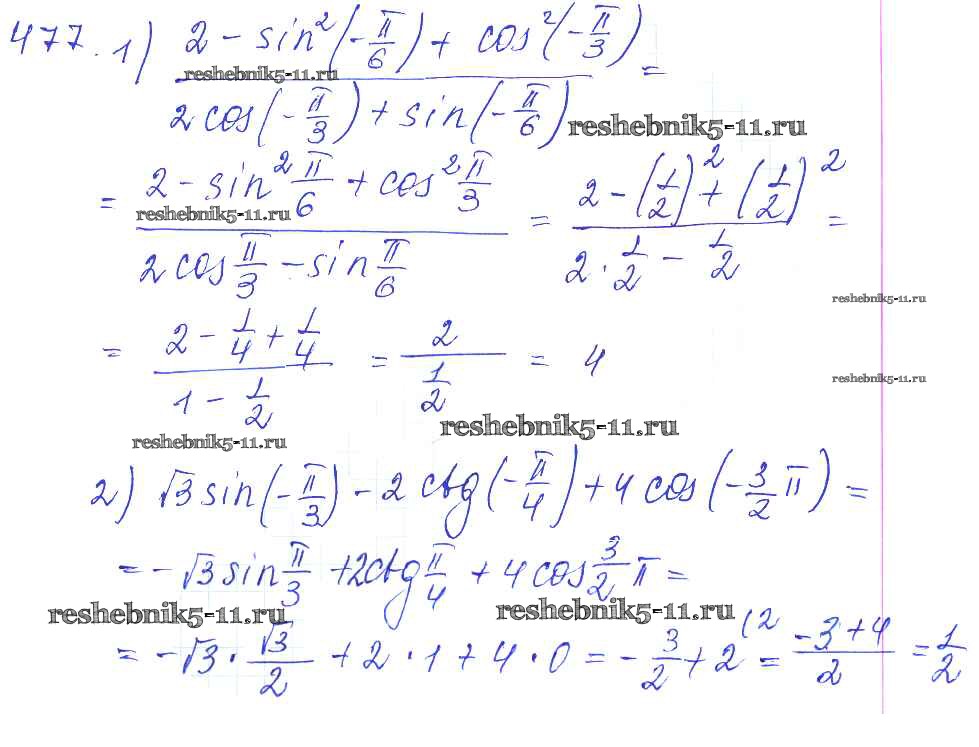 477. 1) (2 - sin²(-π/6) + cos²(-π/3)) / (2cos(-π/3) + sin(-π/6)) =
reshebnik5-11.ru
reshebnik5-11.ru
= (2 - sin² π/6 + cos² π/3) / (2cos π/3 - sin π/6) = (2 - (1/2)² + (1/2)²) / (2 · 1/2 - 1/2) =
reshebnik5-11.ru
reshebnik5-11.ru
= (2 - 1/4 + 1/4) / (1 - 1/2) = 2 / (1/2) = 4
reshebnik5-11.ru
reshebnik5-11.ru
reshebnik5-11.ru
2) √3 sin(-π/3) - 2 ctg(-π/4) + 4 cos(-3/2 π) =
= -√3 sin π/3 + 2ctg π/4 + 4 cos 3/2 π =
reshebnik5-11.ru
reshebnik5-11.ru
= -√3 · √3/2 + 2 · 1 + 4 · 0 = -3/2 + 2 (2 = (-3+4)/2 = 1/2